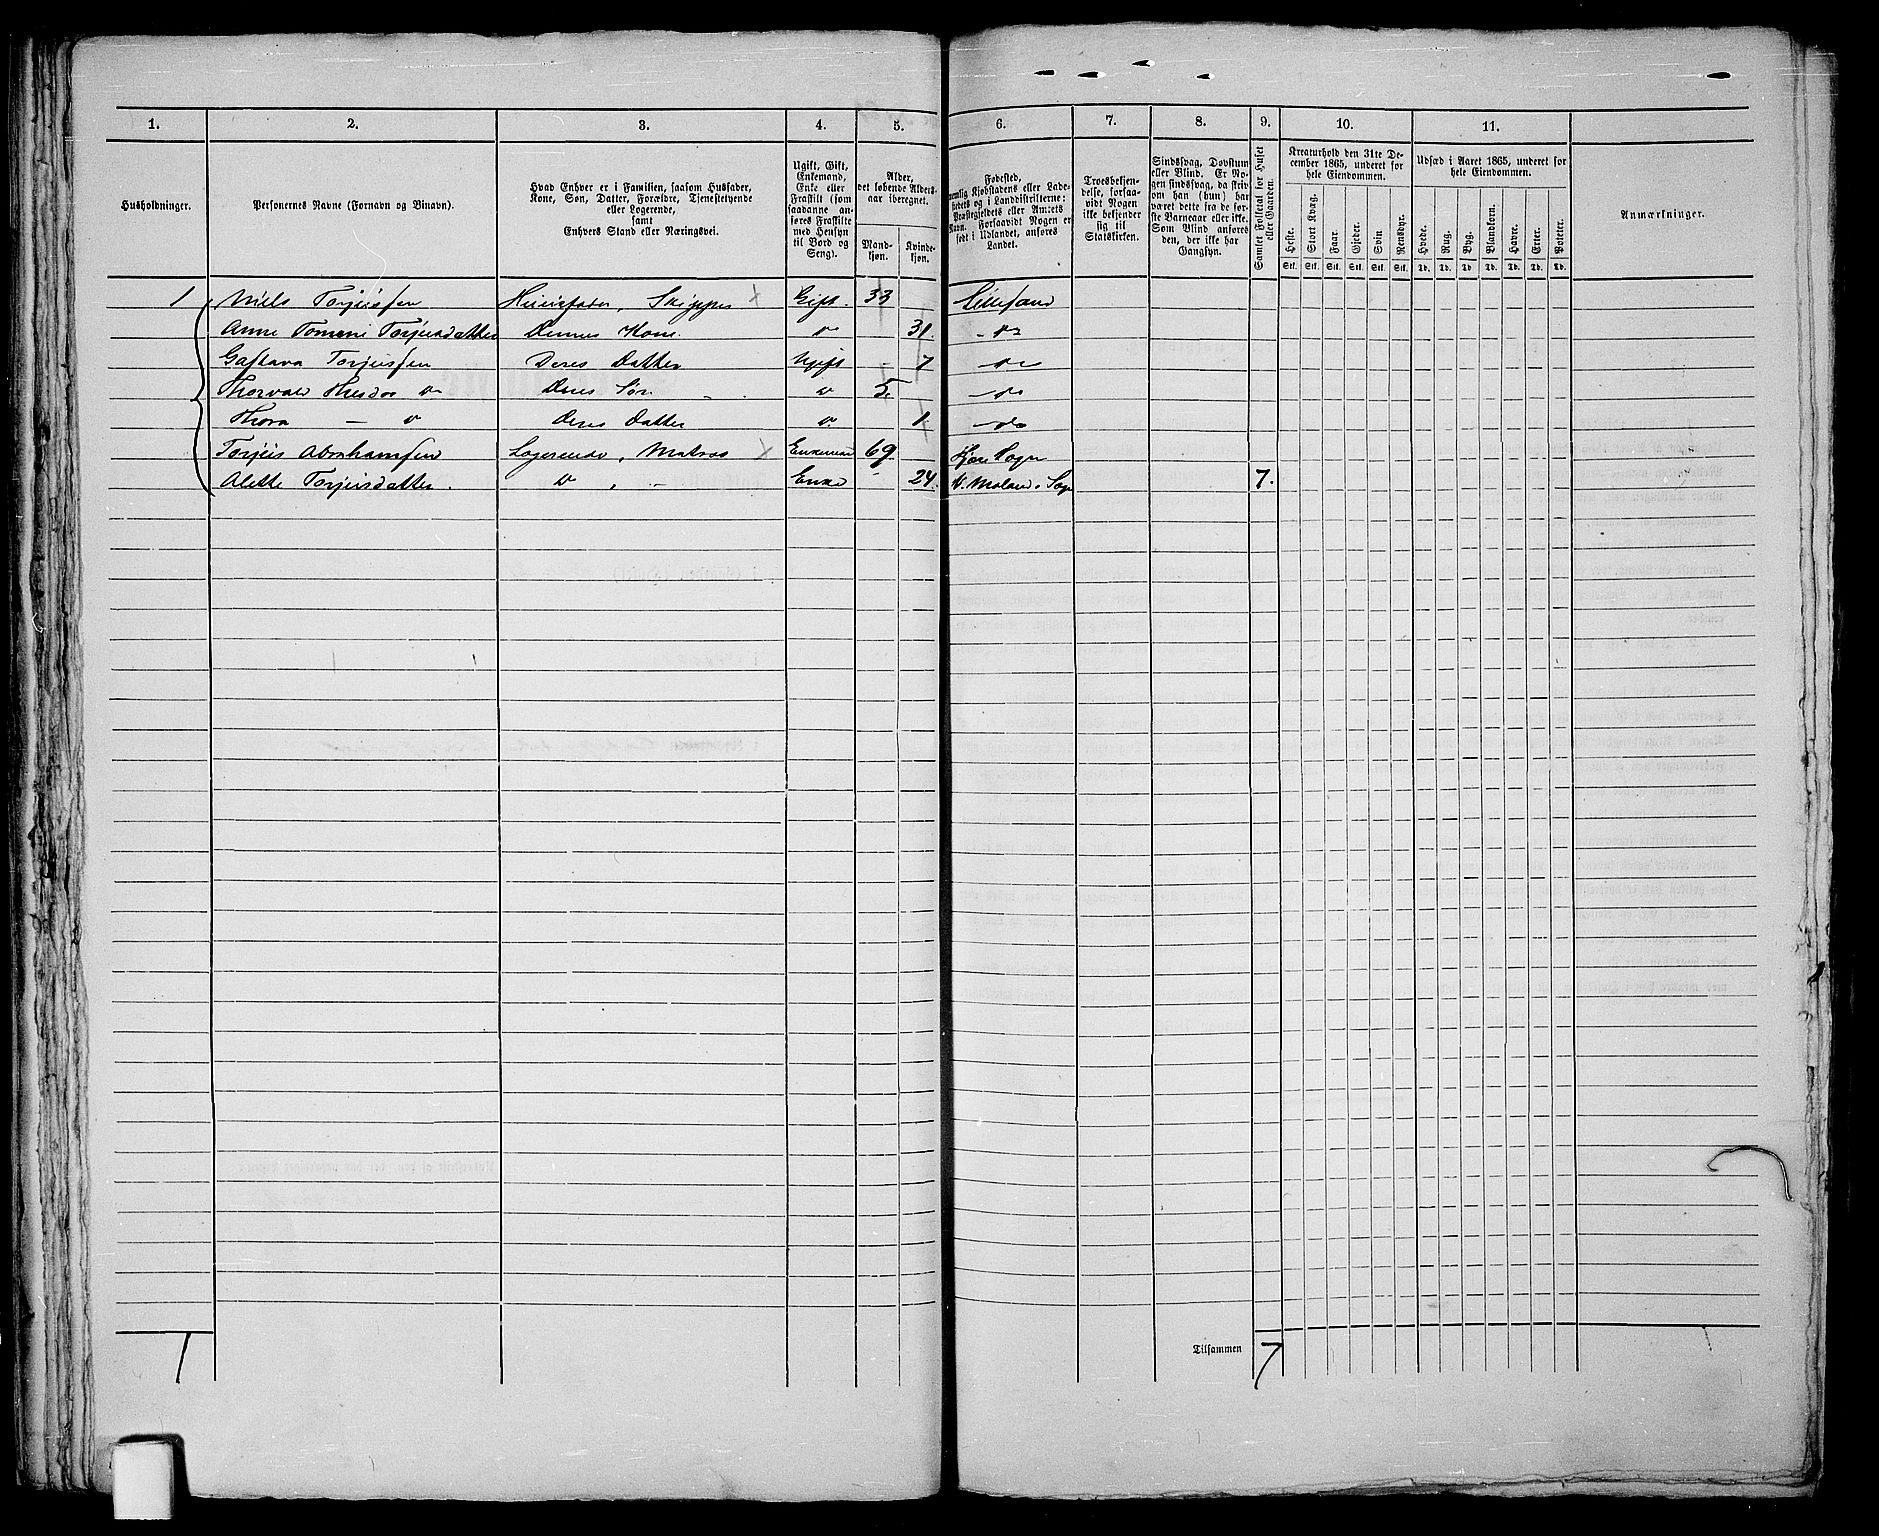 1. 2. 3. 4. 5. 6. 7. 8. 9. 10. 11.
Husholdninger.
Personernes Navne (Fornavn og Binavn).
Hvad Enhver er i Familien, saasom Husfader,
Kone, Søn, Datter, Forældre, Tjenestetyende
eller Logerende,
samt
Enhvers Stand eller Næringsvei.
Ugift, Gift,
Enkemand,
Enke eller
Fraskilt (som
saadanne an-
føres Fraskilte
med Hensyn
til Bord og
Seng).
Alder,
det løbende Alders-
aar iberegnet.
Mand-
kjøn.
Kvinde-
kjøn.
Fødested,
nemlig Kjøbstadens eller Lade-
stedets og i Landdistrikterne:
Præstegjeldets eller Amtets
Navn. Forsaavidt Nogen er
født i Udlandet, anføres
Landet.
Troesbekjen-
delse, forsaa-
vidt Nogen
ikke bekjender
sig til
Statskirken.
Sindssvag, Døvstum
eller Blind. Er No-
gen sindssvag, da skriv
om han (hun) har
været dette fra de før-
ste Barneaar eller ikke.
Som Blind anføres
den, der ikke har
Gangsyn.
Samlet Folketal for Huset
eller Gaarden.
Kreaturhold den 31te De-
cember 1865, underet for
hele Eiendommen.
Heste. Stort Kvæg. Faar. Gjeder. Svin Rensdyr.
Stk. Stk. Stk. Stk. Stk. Stk.
Udsæd i Aaret 1865, underet for
hele Eiendommen.
Hvede. Rug. Byg. Blandkorn. Havre. Erter. Poteter.
Td. Td. Td Td. Td. Td. Td.
Anmærkninger.
1 Niels Torjeissen Huusfader, Skipper Gift. 33 Lillesand
Anne Tomine Torjeisdatter Dennes Kone. do 31. - do
Gustava Torjeissen Deres Datter Ugift - 7 - do
Thorvald Theodor do Deres Søn do 5. - do
Thora — do Deres Datter do 1. - do
Torjeis Abrahamsen Logerende, Matros Enkemand 69. Sogn
Alette Torjeisdatter. do , - Enke - 24. V. Molands Sogn 7.
1 Tilsammen 7